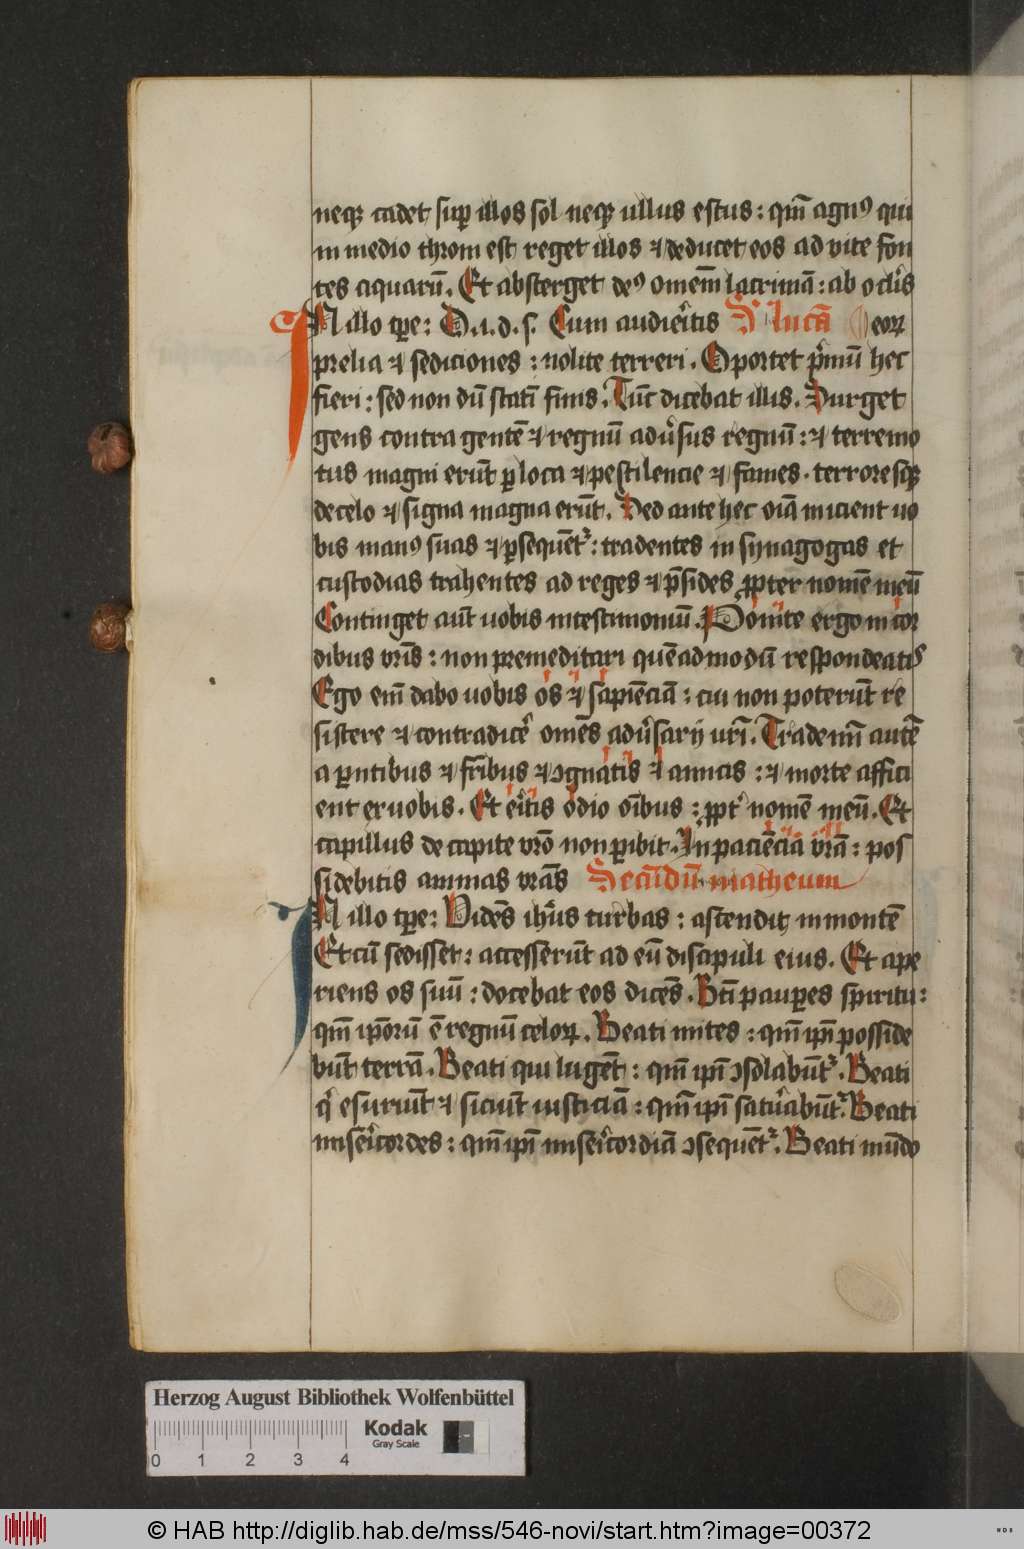 neqꝫ cadet suꝑ illos sol neqꝫ ullus estus : qm̄ agnꝰ qui
in medio throni est reget illos ⁊ deducet eos ad vite fon
tes aquarū . Et absterget deꝰ omem̄ lacrimā : ab oclis
S lucā
IN illo tꝑe : D . i . d . s . Cum audieritis eoꝝ
prelia ⁊ sediciones : nolite terreri . Oportet pͥmū hec
fieri : sed non dū statī finis . Tūc dicebat illis . Surget
gens contra gentē ⁊ regnū adūsus regnū : ⁊ terremo
tus magni erūt ꝑ loca ⁊ pestilencie ⁊ fames . terroresqꝫ
de celo ⁊ signa magna erūt . Sed ante hec oīa inicient uo
bis manꝰ suas ⁊ ꝑsequēt᷑ : tradentes in synagogas et
custodias trahentes ad reges ⁊ p̄sides ꝓpter nomē meū
Continget aūt uobis in testimoniū . Ponite ergo in cor
dibus vr̄is : non premeditari quēadmodū respondeatis
Ego em̄ dabo uobis os ⁊ sapienciā : cui non poterūt re
sistere ⁊ contradicē omēs adūsarij vr̄i . Trademī autē
a ꝑentibus ⁊ fr̄ibus ⁊ ꝯgnatis ⁊ amicis : ⁊ morte affici
ent ex uobis . Et eritis odio oībus : ꝓpt̄ nomē meū . Et
capillus de capite vr̄o non ꝑibit . In paciēcia vr̄a : pos
sidebitis animas vr̄as Secūdū matheum
IN illo tꝑe : Vidēs ihūs turbas : ascendit in montē
Et cū sedisset : accesserūt ad eū discipuli eius . Et ape
riens os suū : docebat eos dicēs . Bt̄i pauꝑes spiritu :
qm̄ ipōrū ē regnū celoꝝ . Beati mites : qm̄ ip̄i posside
būt terrā . Beati qui lugēt : qm̄ ip̄i ꝯsolabūt᷑ . Beati
qͥ esuriūt ⁊ siciūt iusticiā : qm̄ ip̄i saturabūt᷑ . Beati
misericordes : qm̄ ip̄i misericordiā ꝯsequēt᷑ . Beati mūdo
Herzog August Bibliothek Wolfenbüttel
Kodak
Gray Scale
0 1 2 3 4
© HAB http://diglib.hab.de/mss/546-novi/start.htm?image=00372